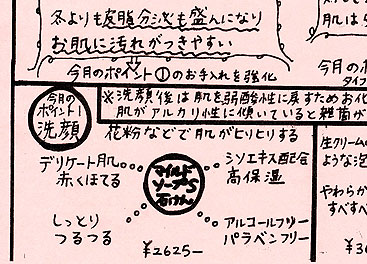 冬よりも皮脂分泌も盛んになり
お肌に汚れがつきやすい
今月のポイント①のお手入れを強化
肌は
今月の
タイプ
今月の
ポイント1
洗顔
※洗顔後は肌を弱酸性に戻すためお化
肌がアルカリ性に傾いていると雑菌が
花粉などで肌がヒリヒリする
デリケート肌
赤くほてる
シソエキス配合
高保湿
マイルド
ソープS
石けん
しっとり
つるつる
アルコールフリー
パラベンフリー
¥2625-
生クリーム
ような泡
やわらか
すべすべ
¥3